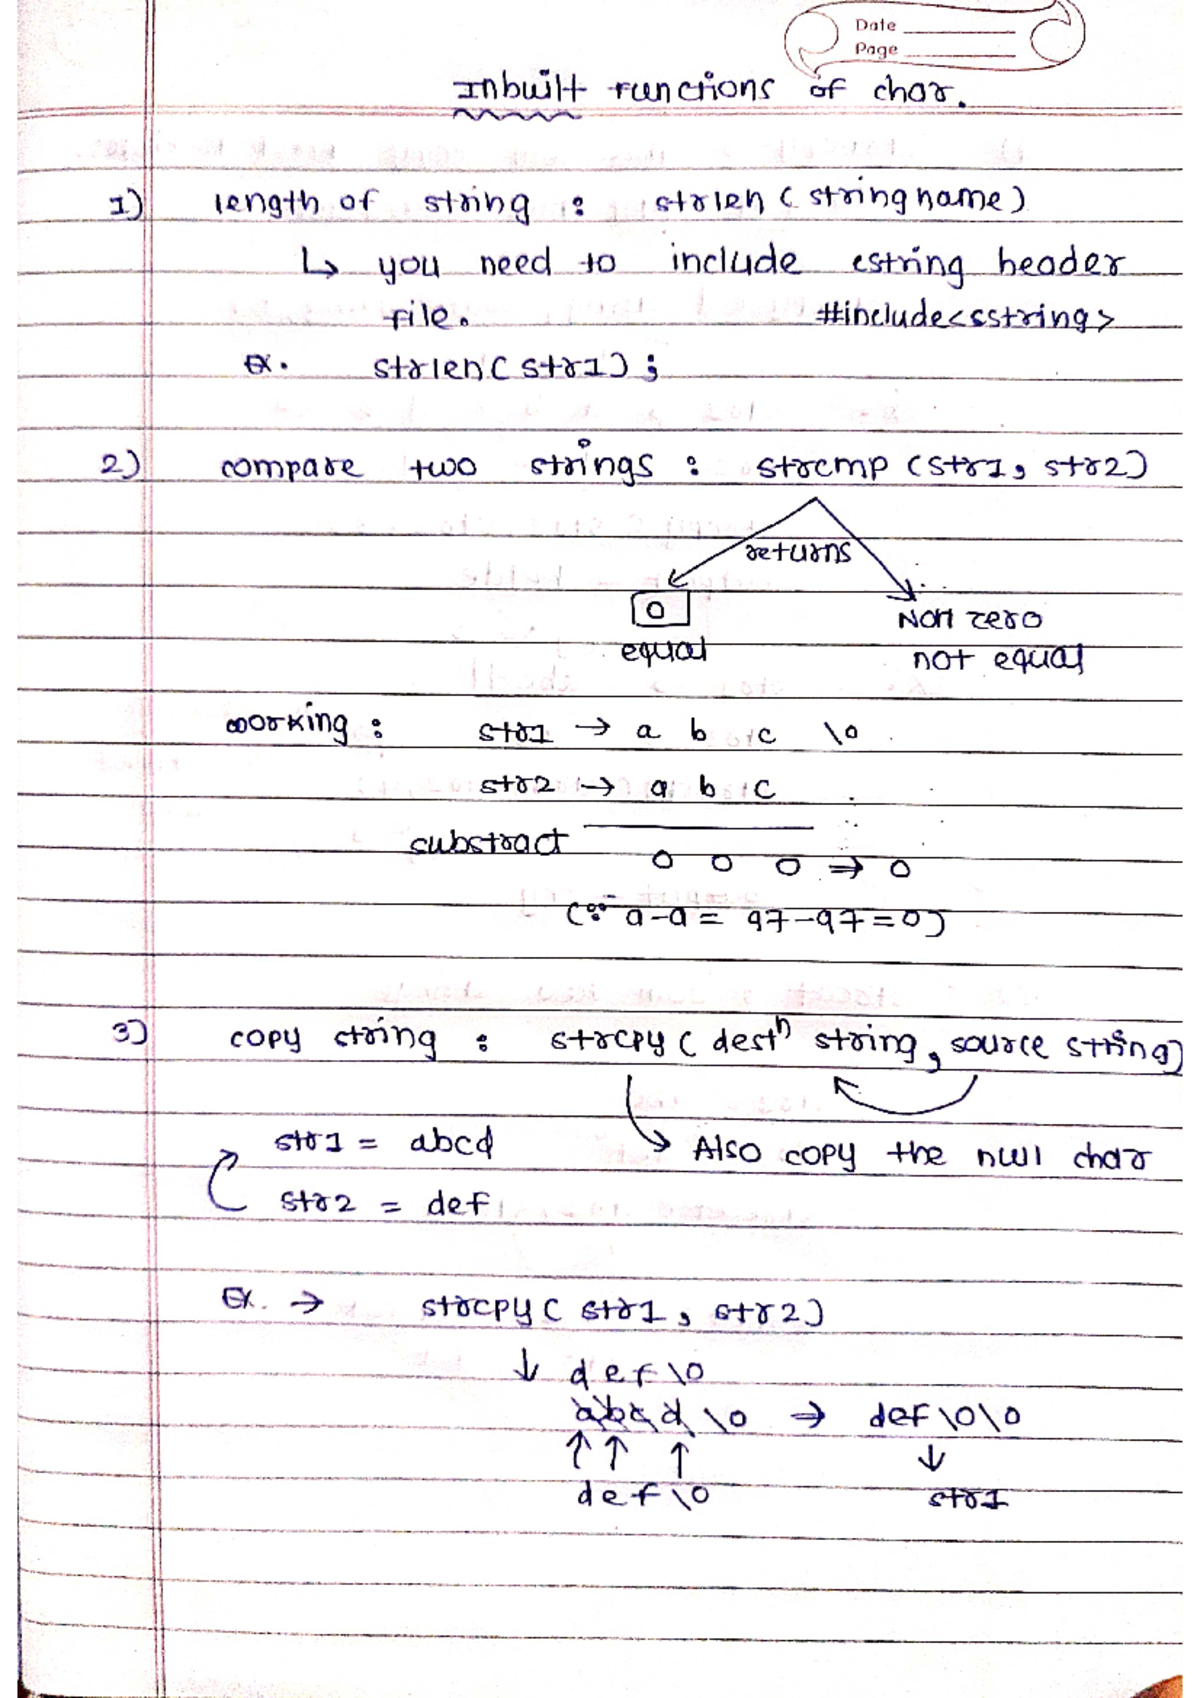 Date
Page
Inbuilt functions of char.
1) length of string : strlen (stringname)
↳ you need to include cstring header
file. #include<sstring>
Ex. strlen(str1);
2) compare two strings : strcmp (str1, str2)
returns
0 Non zero
equal not equal
working : str1 → a b c \0
str2 → a b c
substract
0 0 0 ⇒ 0
(∵ a-a = 97-97=0)
3) copy string : strcpy ( destn string, source string)
str1 = abcd → Also copy the null char
str2 = def
Ex. → strcpy( str1, str2)
↓ def\0
abcd\0 ⇒ def\0\0
↑ ↑ ↑ ↓
def\0 str1